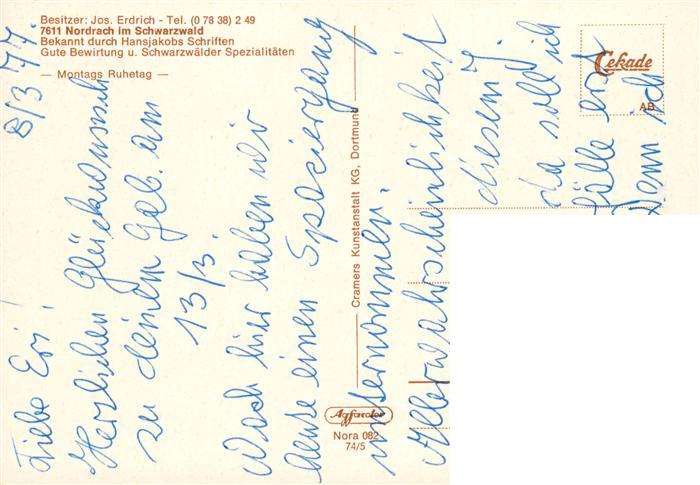 Besitzer: Jos. Erdrich - Tel. (0 78 38) 2 49
7611 Nordrach im Schwarzwald
Bekannt durch Hansjakobs Schriften
Gute Bewirtung u. Schwarzwälder Spezialitäten
— Montags Ruhetag —
Cekade
AB
Cramers Kunstanstalt KG, Dortmund
Agfacolor
Nora 082
74/5
8/3 77.
Liebe Eri!
Herzlichen Glückwunsch
zu deinem Geb. am
13/3.
hier haben wir
heute einen Spaziergang
unternommen.
Allerwahrscheinlichkeit
diesem J.
da soll ich
Fälle
Denn ich